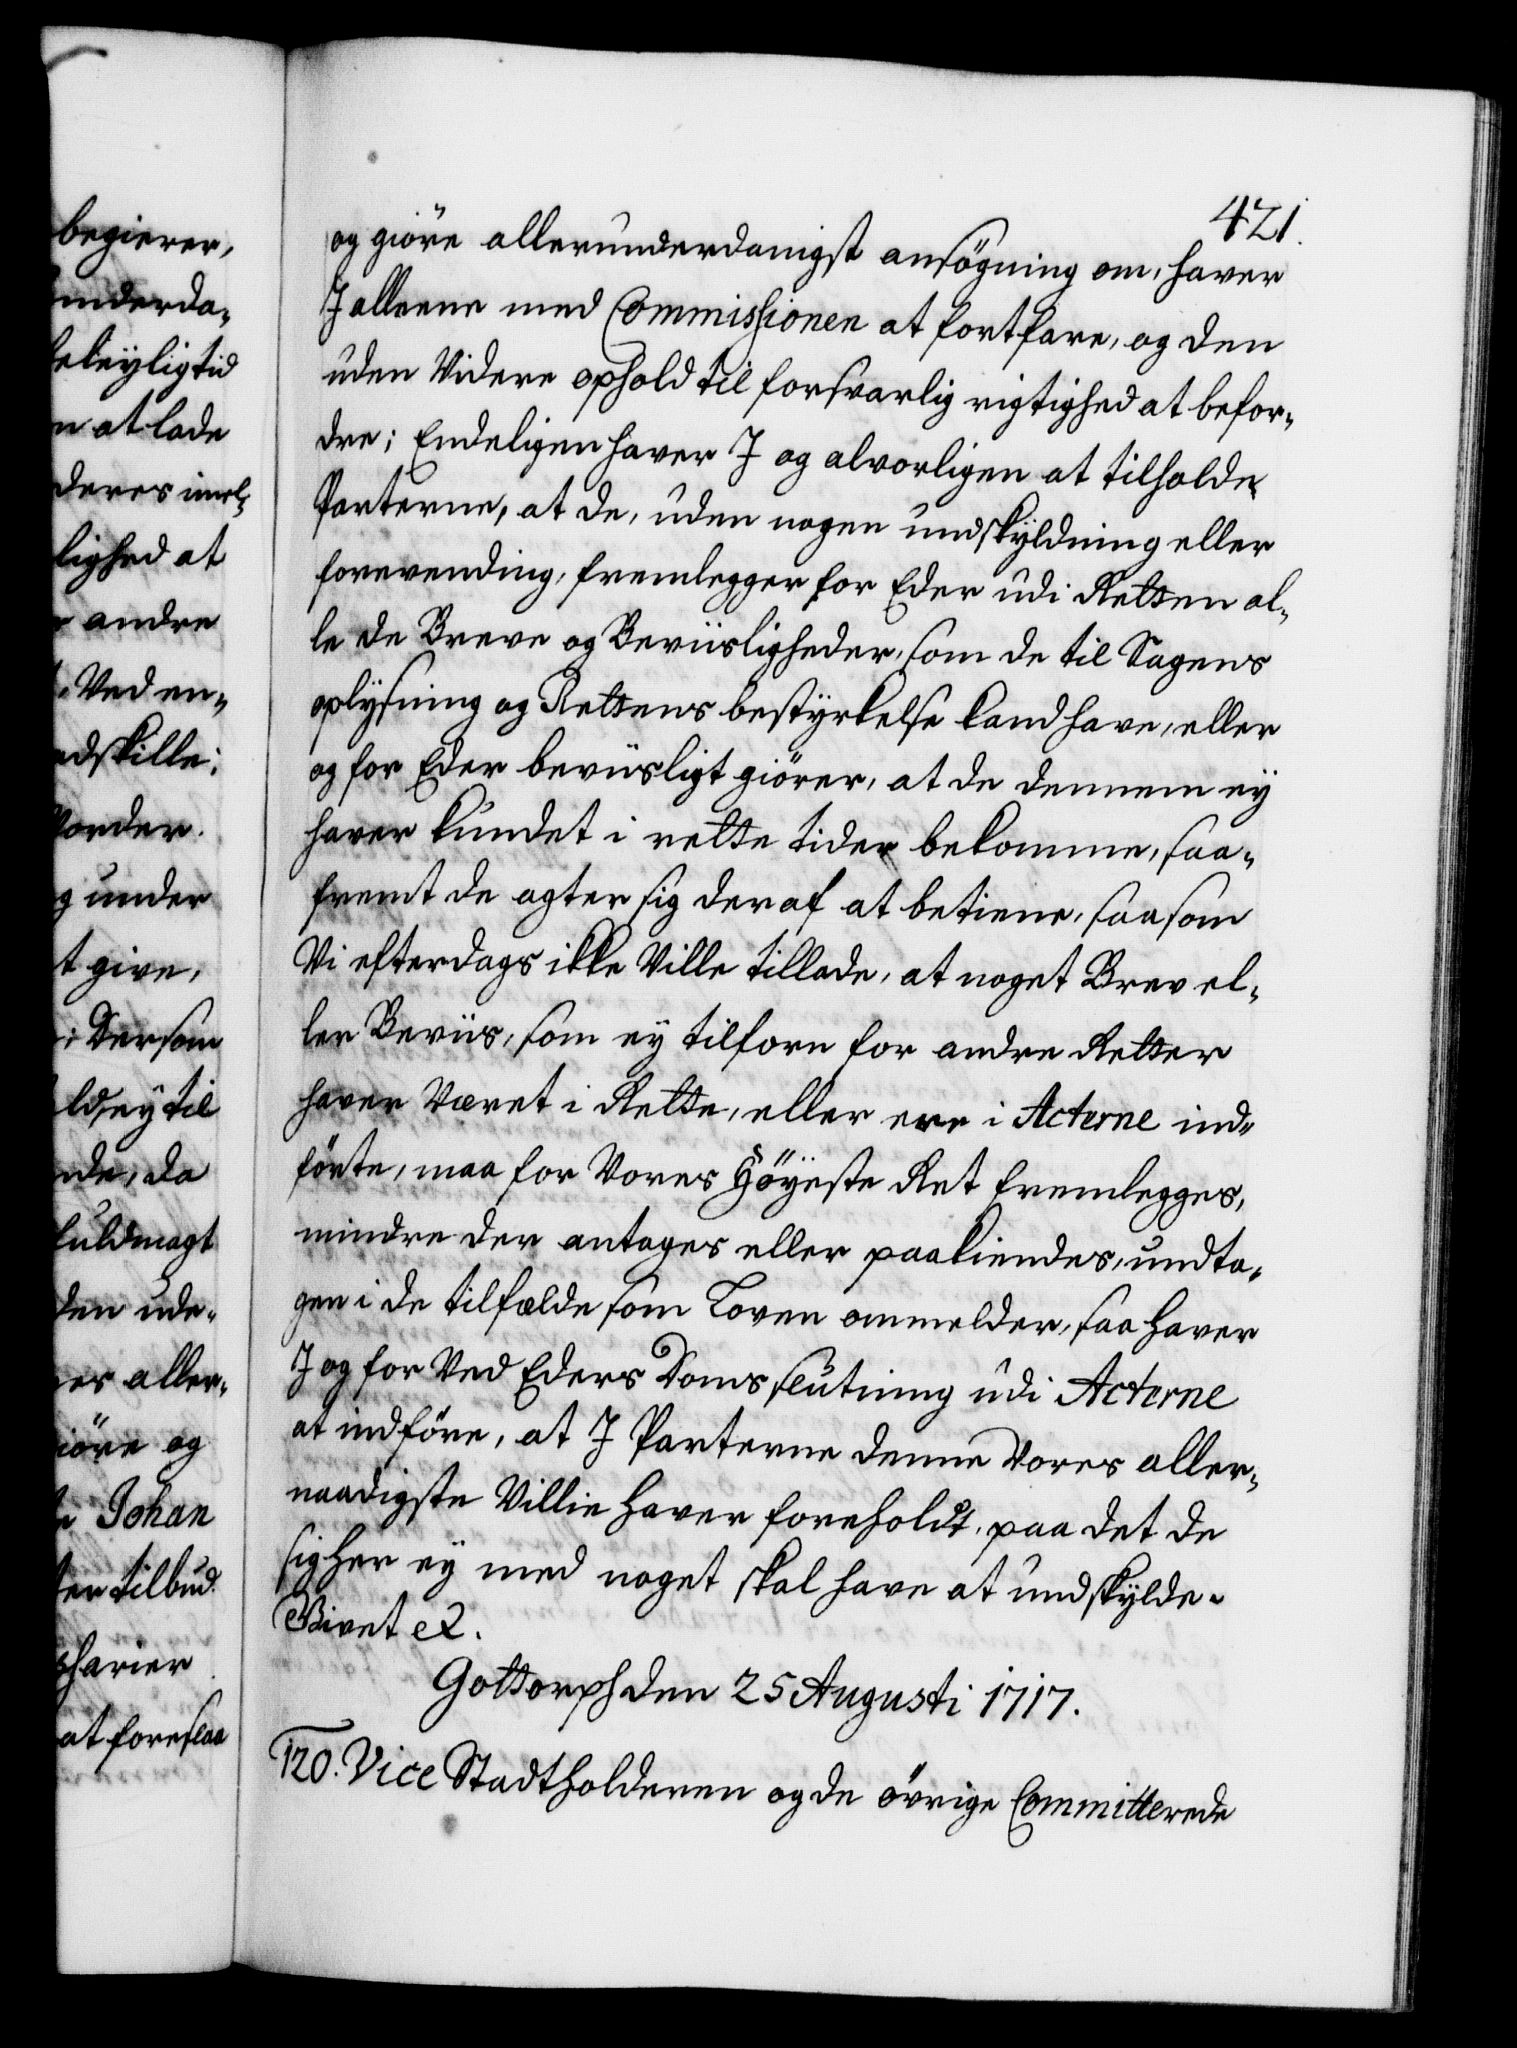 begierer,
underda-
beleyligtid
n at lade
deres imel-
lighed at
r andre
Ved en-
adskille;
Vorder.
g under
t give,
i Dersom
ld, ey til
nde, da
fuldmagt
den ude-
es aller-
iöre og
Johan
ter tilbud.
harier
at foreslaa
421.
og giöre allerunderdanigst ansögning om, haver
J alleene med Commissionen at fortfare, og den
uden Videre ophold til forsvarlig rigtighed at befor-
dre; Endeligen haver J og alvorligen at tilholde
Parterne, at de, uden nogen undskyldning eller
forevending, fremlegger for Eder udi Retten al-
le de Breve og Beviisligheder, som de til Sagens
oplysning og Rettens bestyrkelse kand have, eller
og for Eder beviisligt giörer, at de dennem ey
haver kundet i rette tider bekomme, saa-
fremt de agter sig deraf at betiene, saasom
Vi efterdags ikke Ville tillade, at noget Brev el-
ler Beviis, som ey tilforn for andre Retter
haver Været i Rette, eller ere i Acterne ind-
förte, maa for Vores Höyeste Ret fremlegges,
mindre der antages eller paakiendes, undta-
gen i de tilfælde som Loven ommelder, saa haver
J og for Ved Eders Doms slutning udi Acterne
at indföre, at J Parterne denne Vores aller-
naadigste Villie haver foreholdt, paa det de
sig her ey med noget skal have at undskylde.
Givet &.
Gottorph den 25 Augusti 1717.
120. Vice Stadtholderen og de övrige Committerede